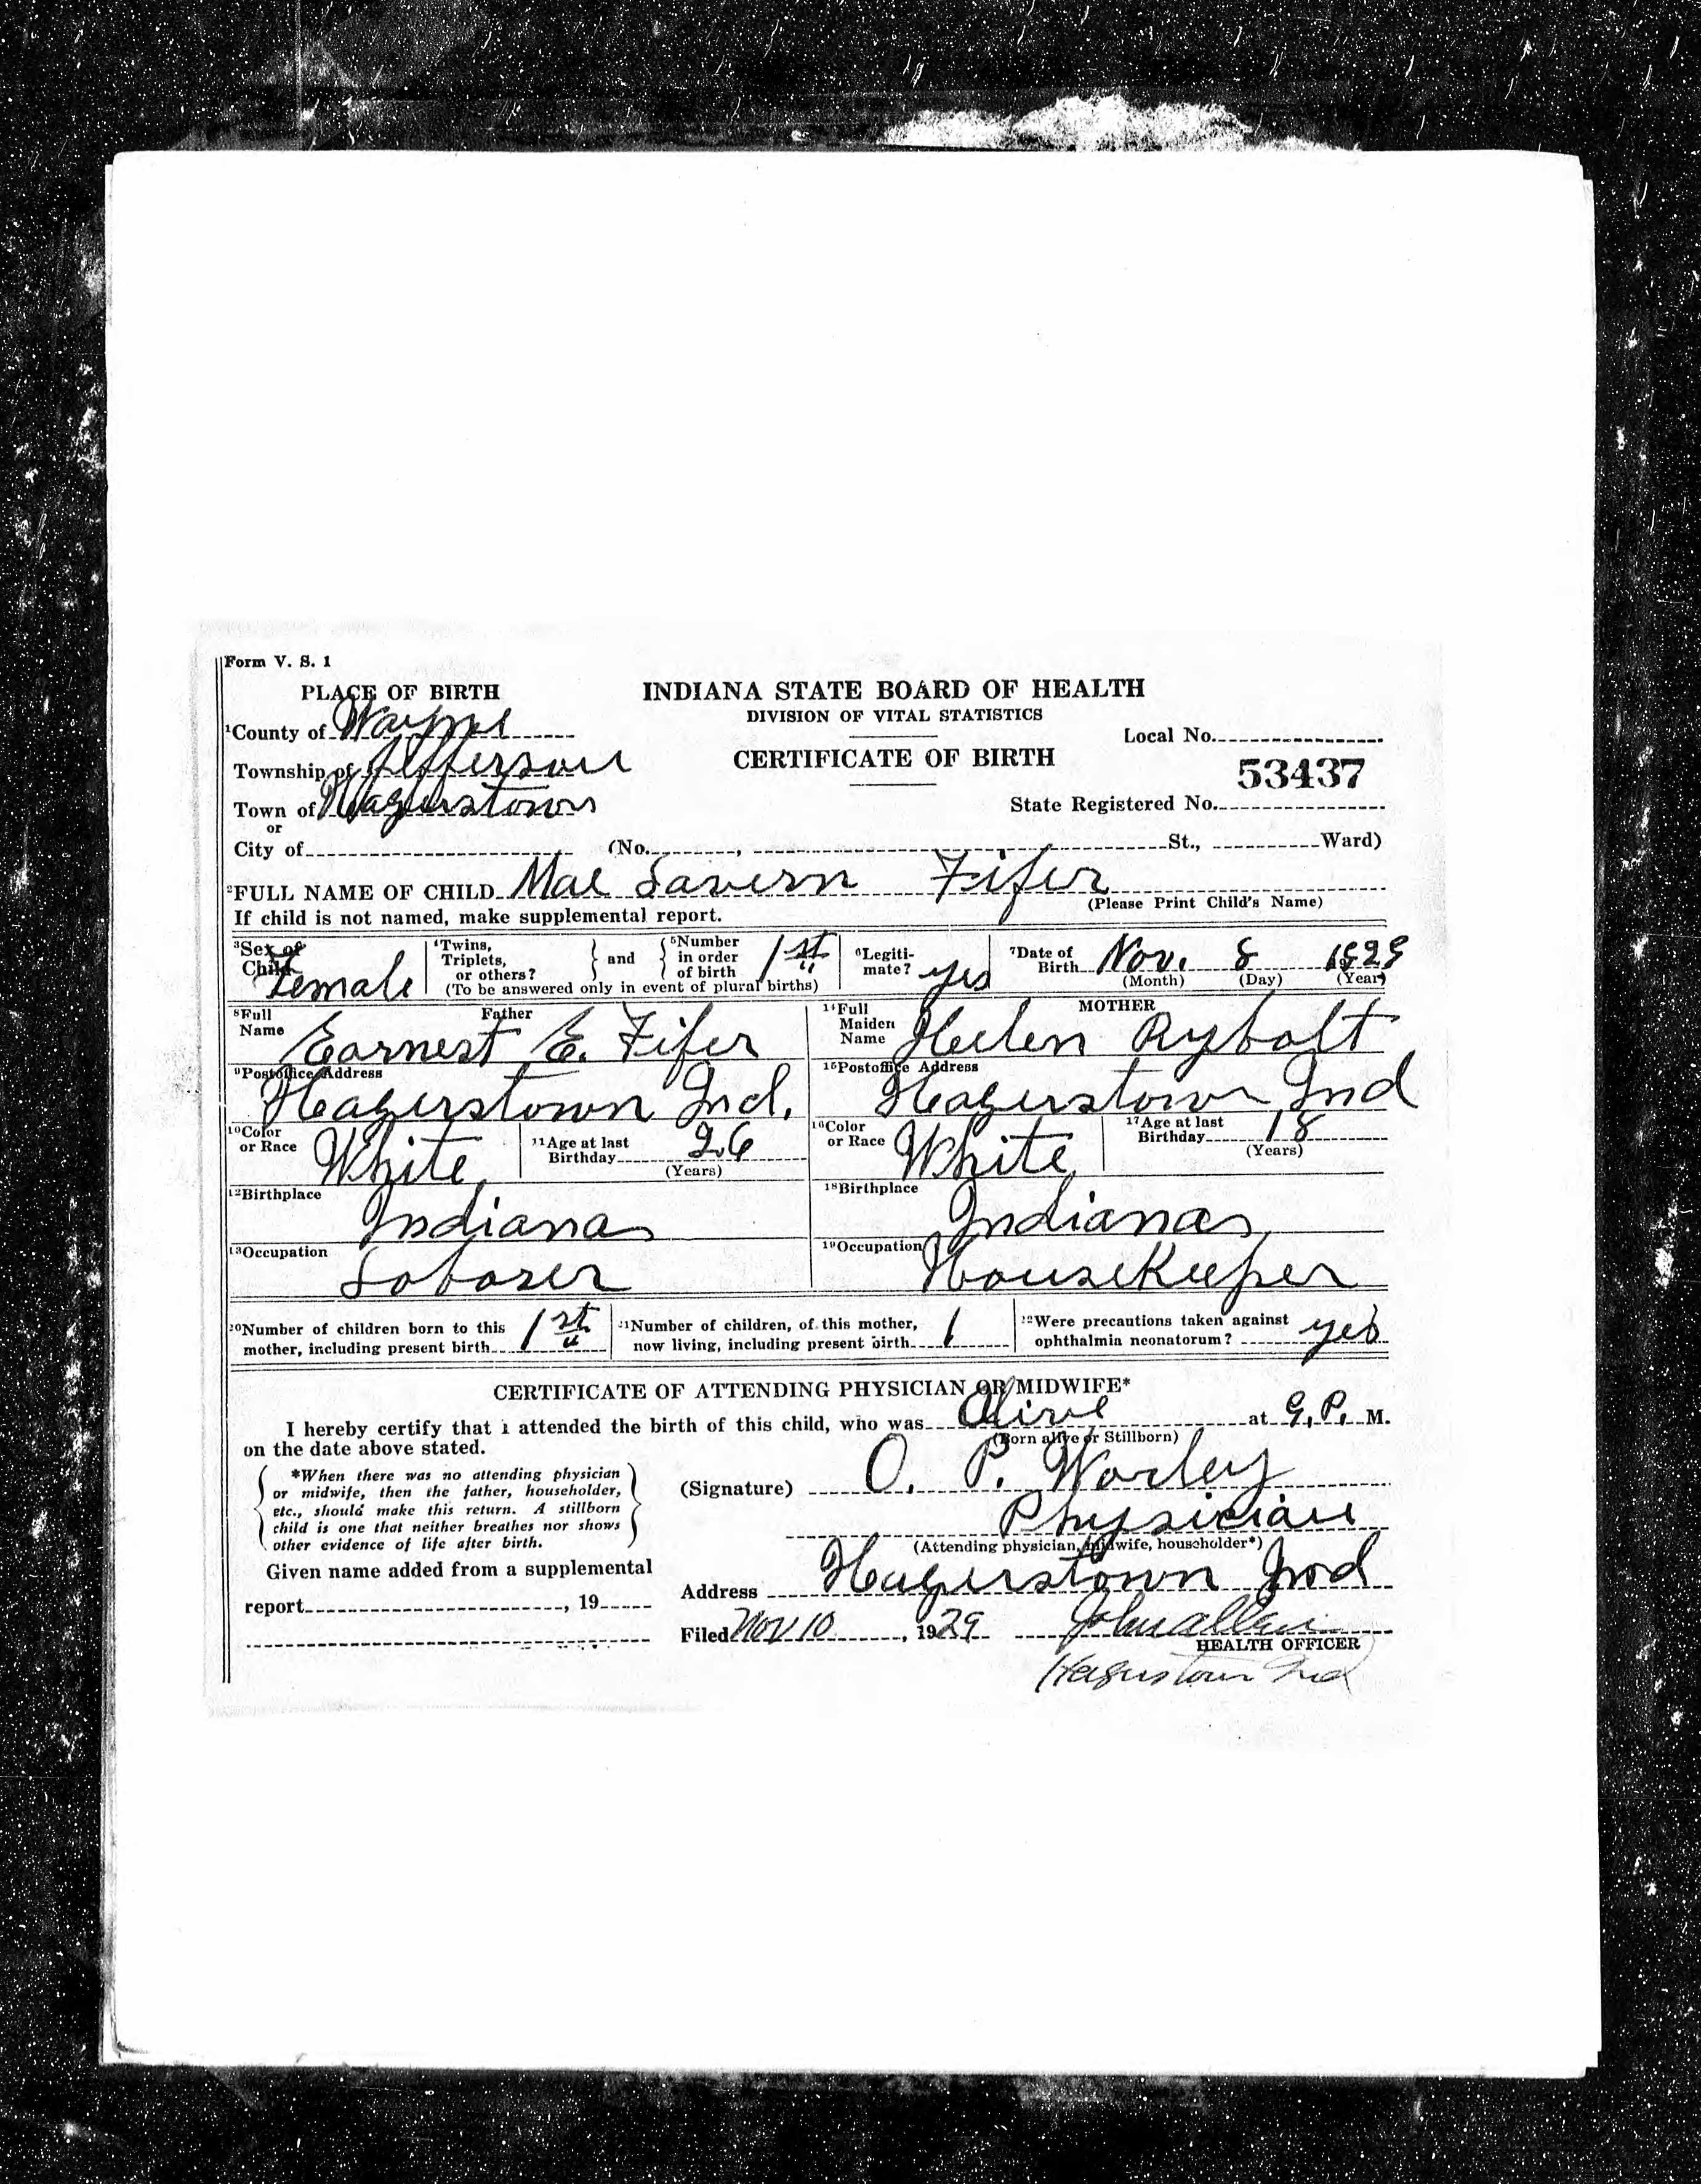 Form V. S. 1
PLACE OF BIRTH
INDIANA STATE BOARD OF HEALTH
DIVISION OF VITAL STATISTICS
1County of Wayne
Local No.
Township of Jefferson
CERTIFICATE OF BIRTH
53437
Town of Hagerstown
State Registered No.
or
City of (No. , St., Ward)
2FULL NAME OF CHILD Mae Lavern Fifer
(Please Print Child's Name)
If child is not named, make supplemental report.
3Sex of Child Female
4Twins, Triplets, or others? } and { 5Number in order of birth 1st
(To be answered only in event of plural births)
6Legiti-mate? yes
7Date of Birth Nov. 8 1929
(Month) (Day) (Year)
Father
8Full Name Earnest E. Fifer
MOTHER
14Full Maiden Name Helen Rybolt
9Postoffice Address
Hagerstown Ind.
15Postoffice Address
Hagerstown Ind
10Color or Race White
11Age at last Birthday 26
(Years)
16Color or Race White
17Age at last Birthday 18
(Years)
12Birthplace
Indiana
18Birthplace
Indiana
13Occupation
Laborer
19Occupation
HouseKeeper
20Number of children born to this mother, including present birth 1st
21Number of children, of this mother, now living, including present birth 1
22Were precautions taken against ophthalmia neonatorum? yes
CERTIFICATE OF ATTENDING PHYSICIAN OR MIDWIFE*
I hereby certify that I attended the birth of this child, who was Alive at 9, P. M.
(Born alive or Stillborn)
on the date above stated.
*When there was no attending physician
or midwife, then the father, householder,
etc., should make this return. A stillborn
child is one that neither breathes nor shows
other evidence of life after birth.
(Signature) O. P. Worley
Physician
(Attending physician, midwife, householder*)
Given name added from a supplemental
report , 19
Address Hagerstown Ind
Filed Nov 10, 1929
HEALTH OFFICER
Hagerstown Ind